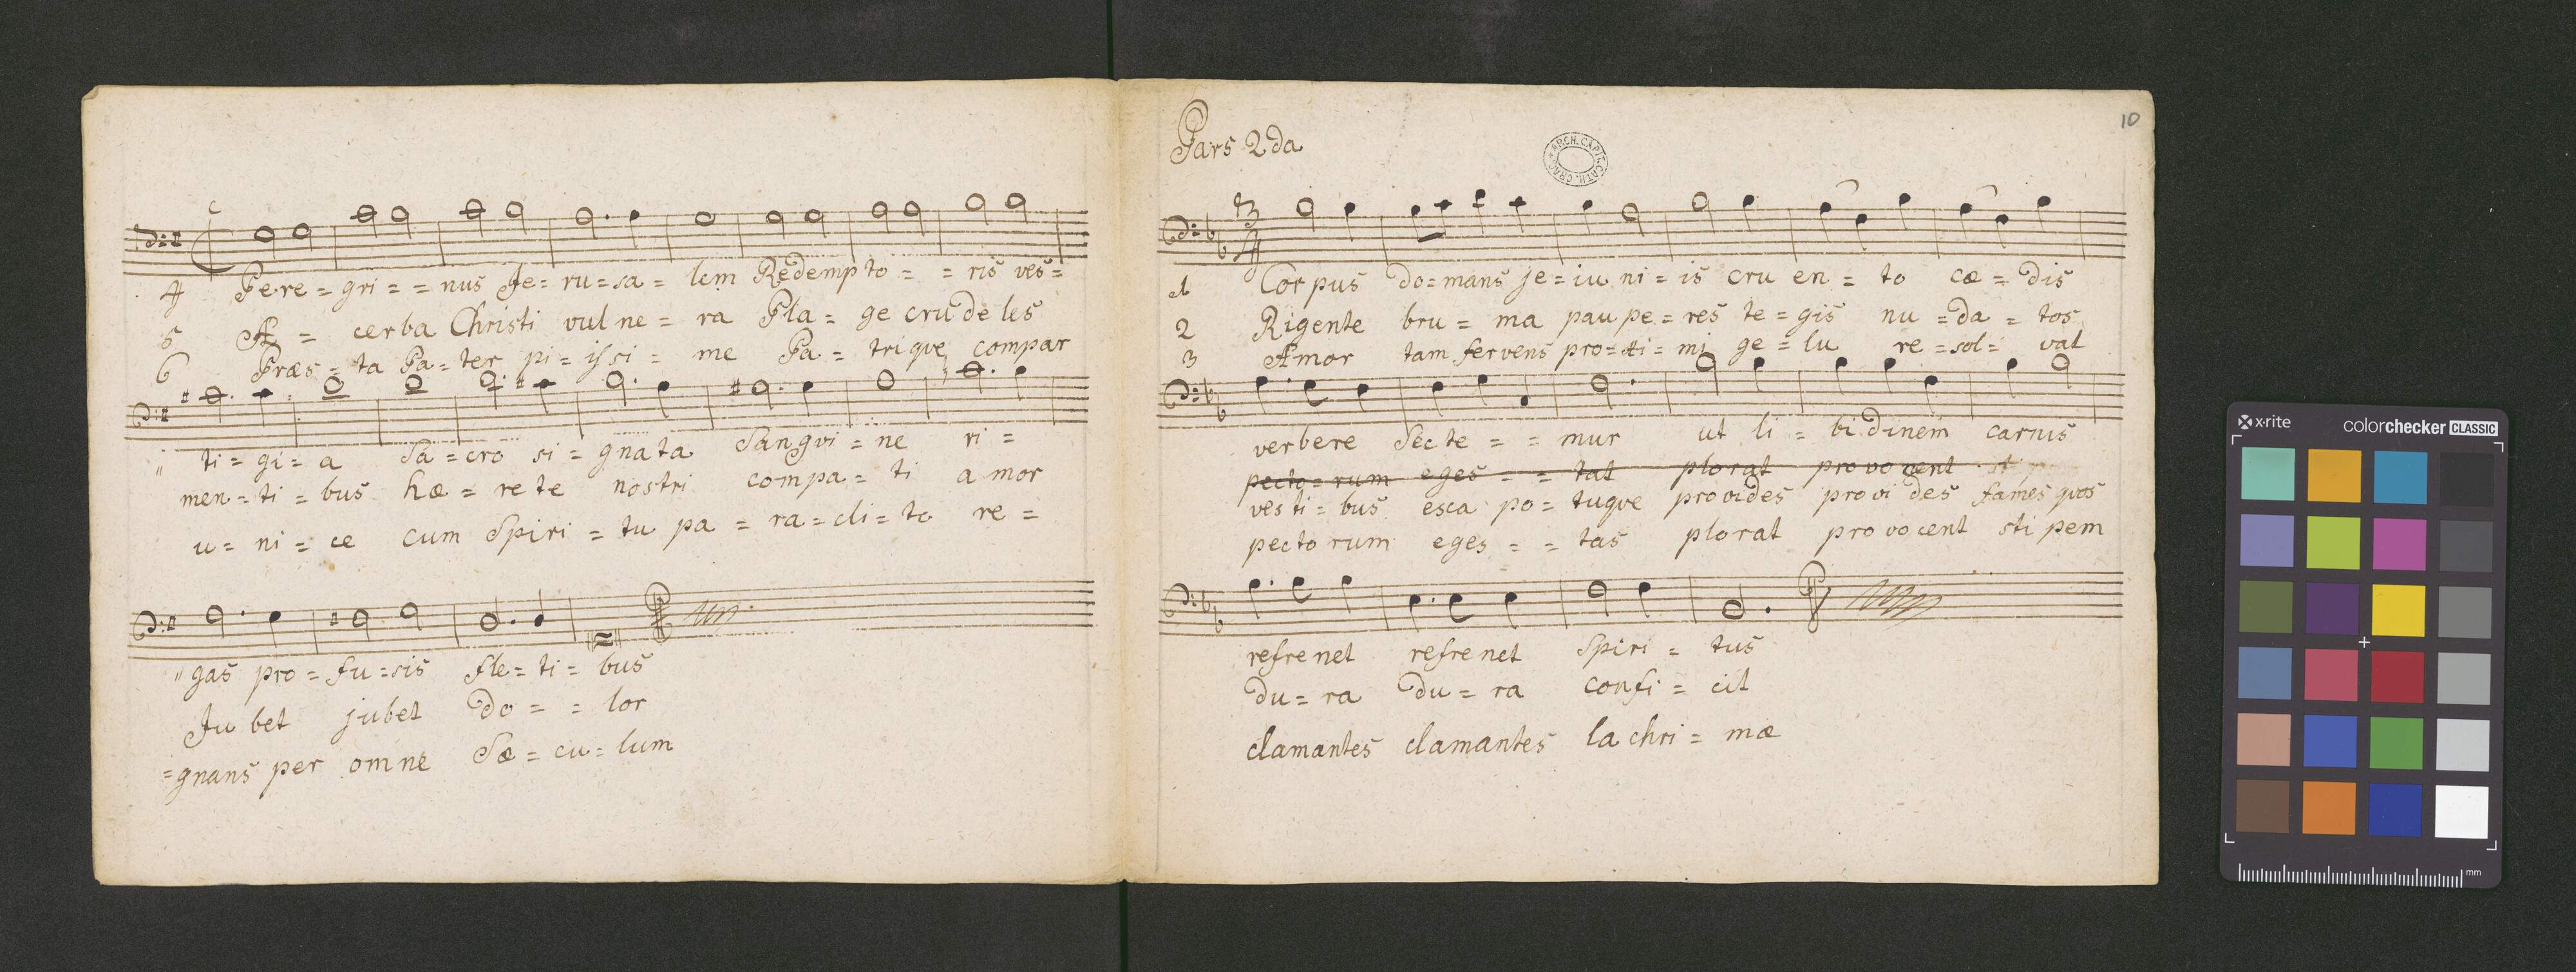 4 Pe-re=gri==nus Je=ru=sa=lem Redempto==ris ves=
5 A=cerba Christi vulne=ra Pla=ge crudeles
6 Præs=ta Pa=ter pi=issi=me Pa=trique compar
"ti=gi=a Sa=cro si=gnata Sangvi=ne ri=
men=ti=bus hæ=rete nostri compa=ti amor
u=ni=ce cum Spiri=tu pa=ra=cli=to re=
"gas pro=fu=sis fle=ti=bus
Jubet jubet do==lor
=gnans per omne Sæ=cu=lum
10
Pars 2da
ARCH. CAPIT. CATH. CRAC.
3/4
1 Corpus do=mans je=iu ni=is cru en=to cæ=dis
2 Rigente bru=ma paupe=res te=gis nu=da=tos
3 Amor tam fervens pro=xi=mi ge=lu re=sol=vat
verbere Secte==mur ut li=bidinem carnis
pecto=rum eges==tat plorat provocent sti
vesti=bus esca po=tuqve provides provides fames qvos
pectorum eges==tas plorat provocent stipem
refrenet refrenet Spiri=tus
du=ra du=ra confi=cit
clamantes clamantes lachri=mæ
x-rite colorchecker CLASSIC
mm